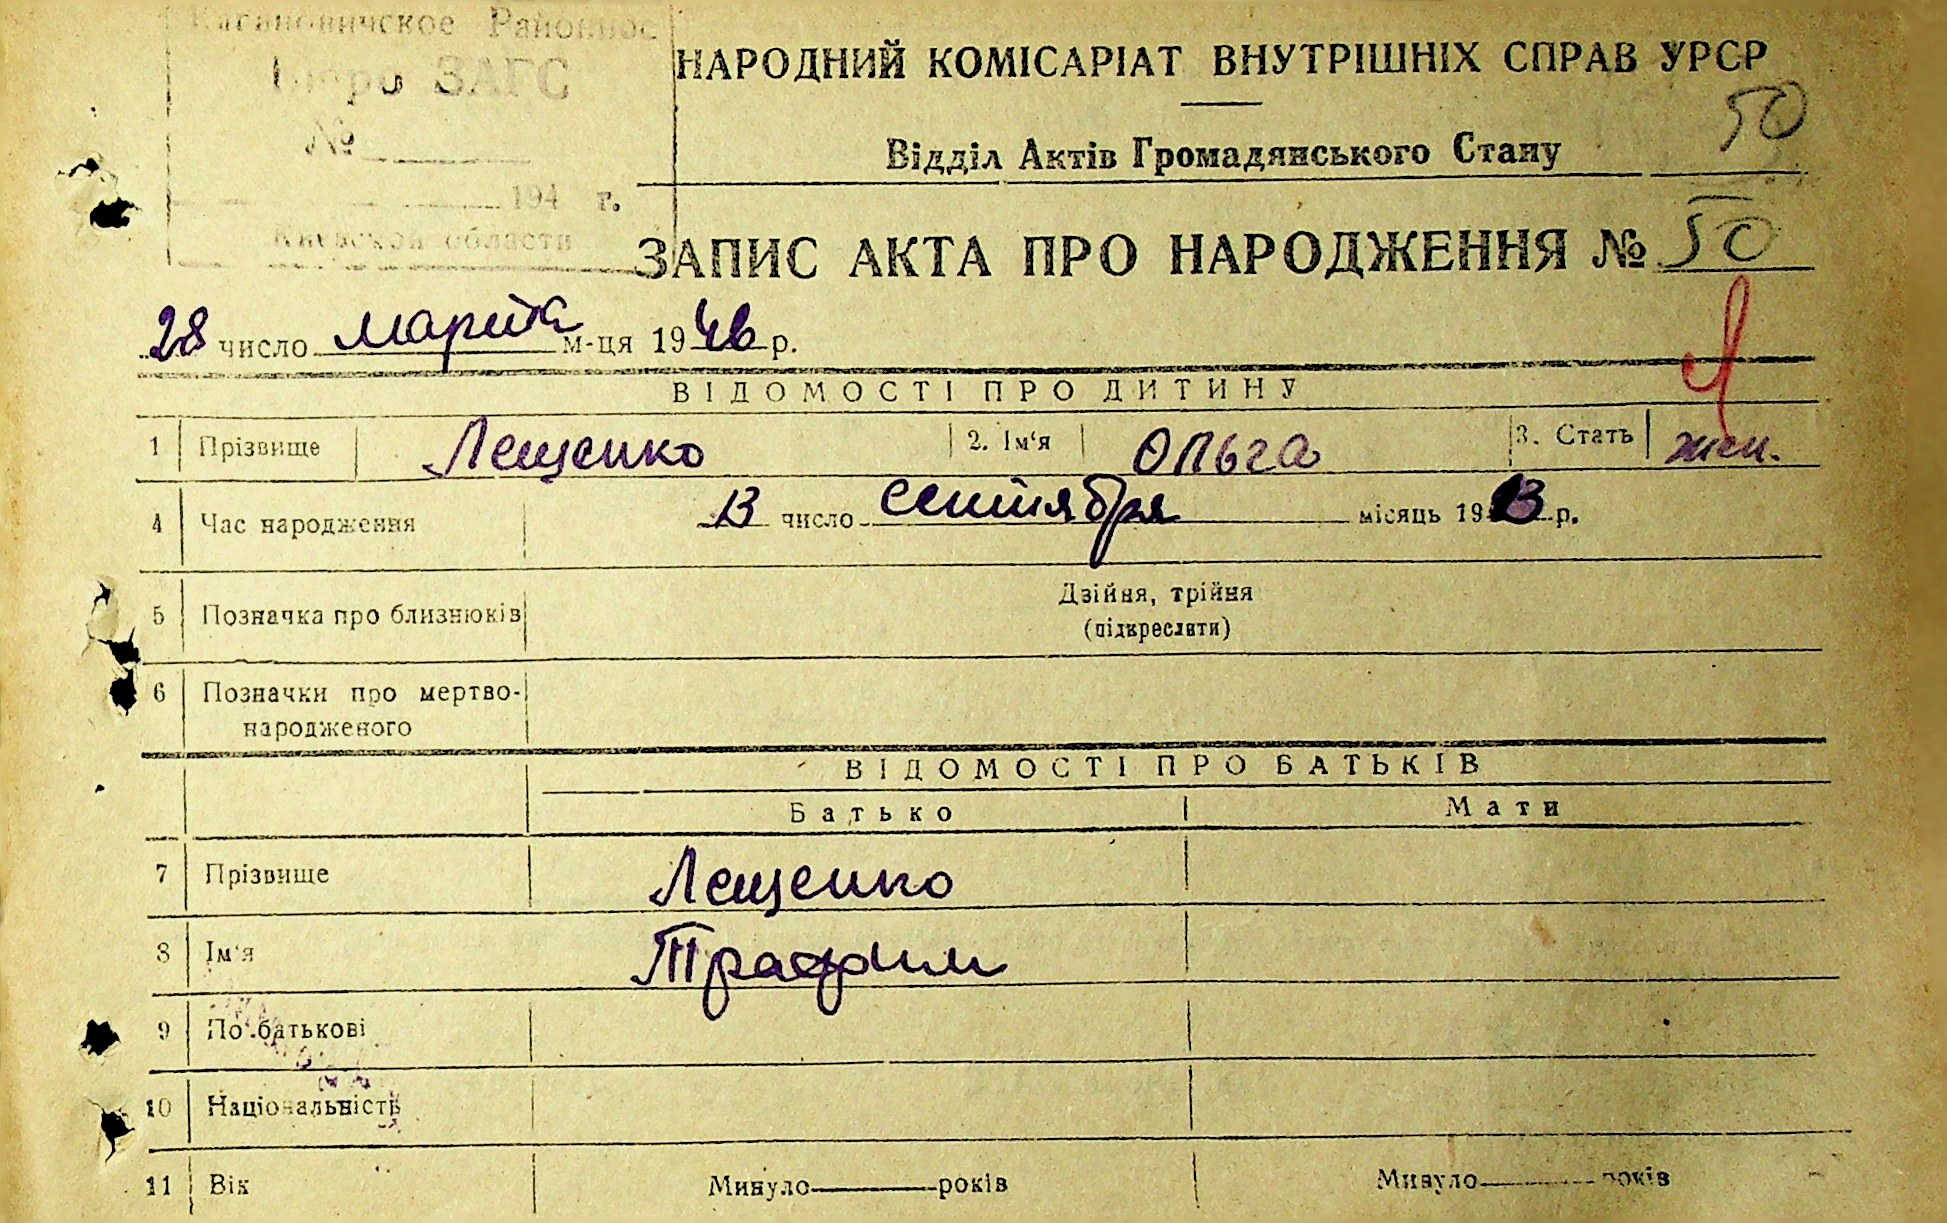 Кагановичское Районное
Бюро ЗАГС
№
194 г.
Киевской области
НАРОДНИЙ КОМІСАРІАТ ВНУТРІШНІХ СПРАВ УРСР
50
Відділ Актів Громадянського Стану
ЗАПИС АКТА ПРО НАРОДЖЕННЯ № 50
28 число марта м-ця 1946 р.
ВІДОМОСТІ ПРО ДИТИНУ
1 Прізвище Лещенко 2. Ім'я Ольга 3. Стать жен.
4 Час народження 13 число сентября місяць 1913 р.
5 Позначка про близнюків Двійня, трійня
(підкреслити)
6 Позначки про мертво-
народженого
ВІДОМОСТІ ПРО БАТЬКІВ
Батько Мати
7 Прізвище Лещенко
8 Ім'я Трафим
9 По батькові
10 Національність
11 Вік Минуло років Минуло років